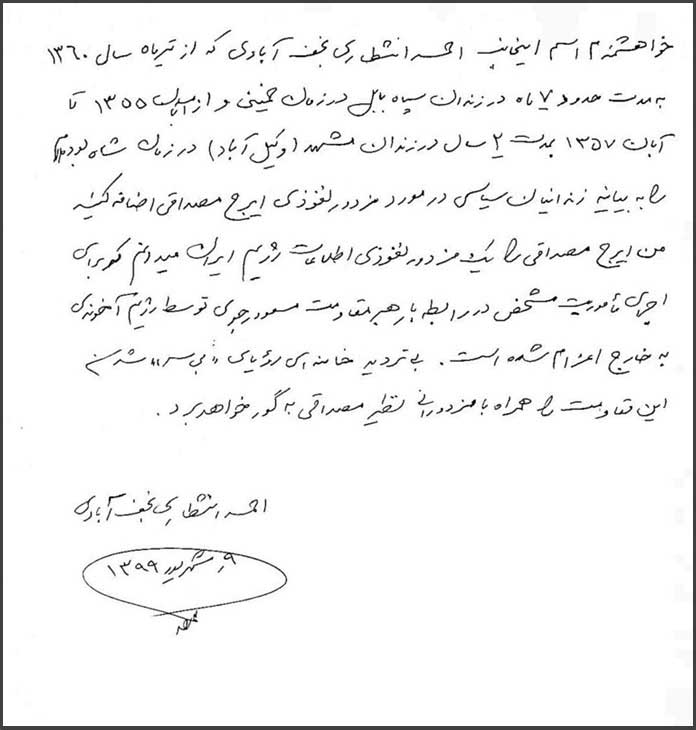 خواهشمندم اسم اینجانب احمد انتظاری نجف آبادی که از تیرماه سال ۱۳۶۰
به مدت حدود ۷ ماه در زندان سپاه بابل در زمان خمینی و از آبان ۱۳۵۵ تا
آبان ۱۳۵۷ بمدت ۲ سال در زندان مشهد (وکیل آباد) در زمان شاه بوده‌ام
را به بیانیه زندانیان سیاسی در مورد مزدور نفوذی ایرج مصداقی اضافه کنید
من ایرج مصداقی را یک مزدور نفوذی اطلاعات رژیم ایران میدانم که برای
اجرای مأموریت مشخص در رابطه با رهبر مقاومت مسعود رجوی توسط رژیم آخوندی
به خارج اعزام شده است. بی تردید خامنه ای رؤیای «بی سر» شدن
این مقاومت را همراه با مزدورانی نظیر مصداقی به گور خواهد برد.
احمد انتظاری نجف آبادی
۹ شهریور ۱۳۹۹